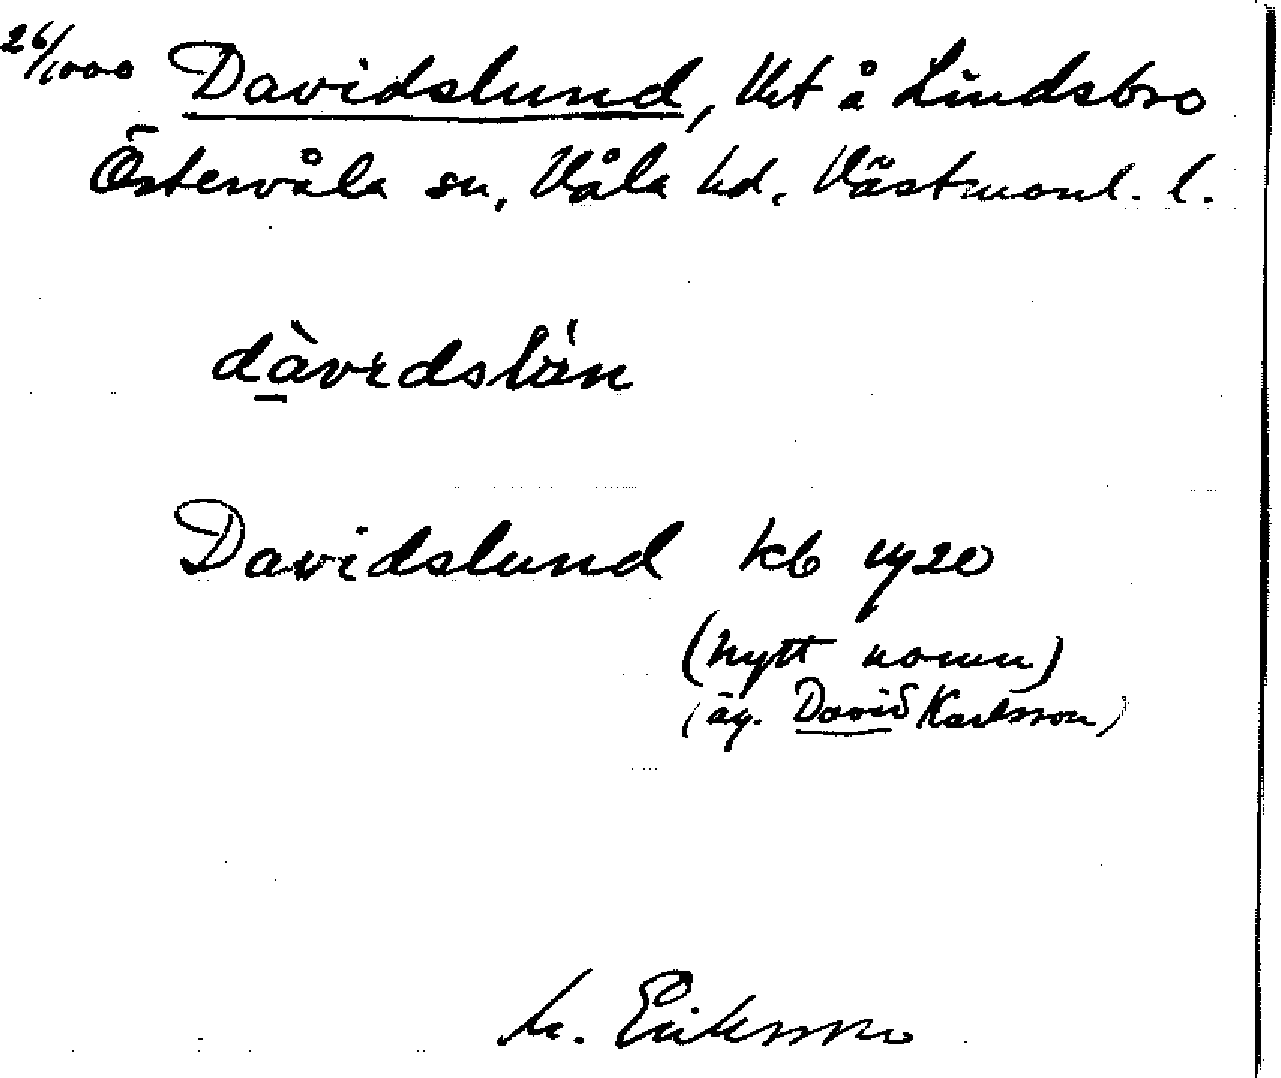 26/1000 Davidslund, lht å Lindsbro
Östervåla sn, Våla hd, Västmanl. l.
dàvɩdslún
Davidslund kb 1920
(nytt namn)
(äg. David Karlsson)
M. Eriksson